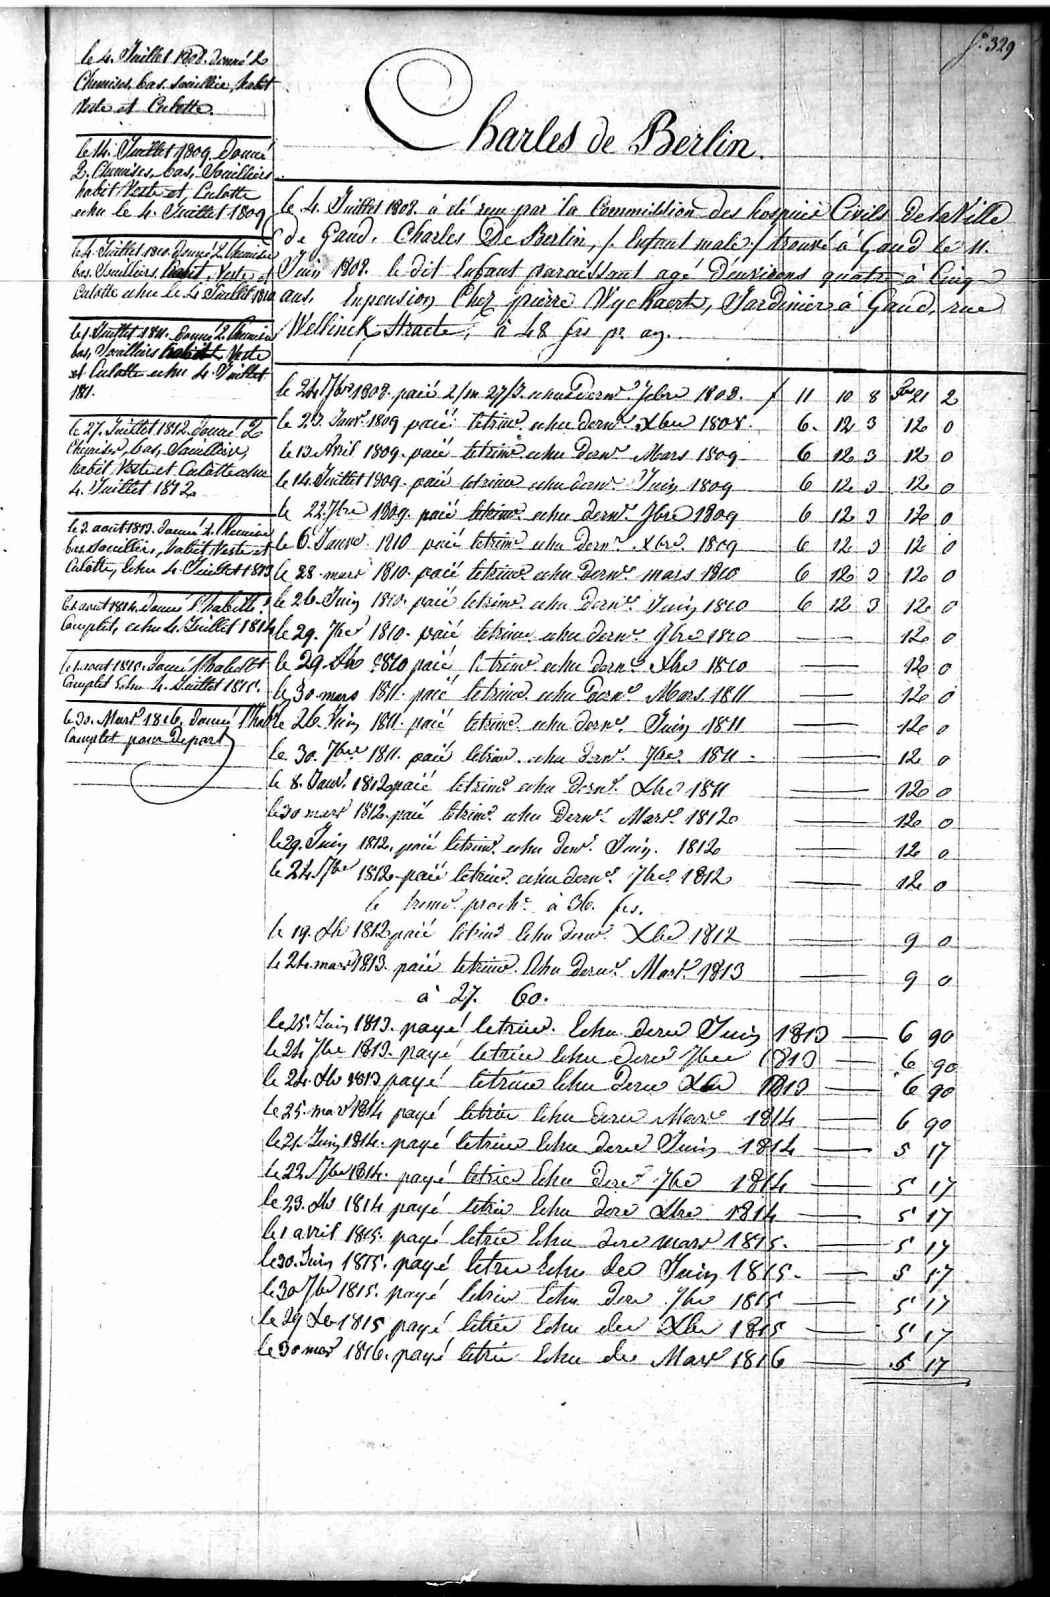 f.° 329
Charles de Berlin.
le 4. Juillet 1808. donné 2
Chemises, bas. souillier, habit
Veste et Culotte.
le 14. Juillet 1809 Donné
2. Chemises, bas, Souilliers
habit Veste et Culotte
echu le 4. Juillet 1809
le 4. Juillet 1810. donné 2. Chemises
bas. Souilliers, habit, Veste et
Culotte echu le 4 Juillet 1810
le 1 Juillet 1811. donné 2. Chemises
bas, Souilliers habit Veste
et Culotte echu 4. Juillet
1811.
le 27. Juillet 1812. donné 2
Chemises, bas, Souilliers,
habit, Veste et Culotte echu
4. Juillet 1812
le 3. aout 1813. Donné 2. Chemises
bas souilliers, habit Veste et
Culotte, Echu 4. Juillet 1813
le 1 aout 1814. donné l'habill.t
Complet, echu 4. Juillet 1814
le 1. aout 1815. Donné l'habillt
Complet Echu 4. Juillet 1815.
le 30. Mars 1816. donné l'hab
Complet pour Depart
le 4. Juillet 1808. à été remi par la Commission des hospice Civils de la Ville
de Gand. Charles De Berlin, /. Enfant male ./ trouvé à Gand le 11.
Juin 1808. le dit Enfant paraissant agé D'environs quatre à Cinq
ans, En pension Chez pierre Wychaert, Jardinier à Gand, rue
Wellinck Straete, à 48 frs pr. an.
le 24 7bre 1808. paié 2/m 27/J. echus dern.r 7bre 1808. f 11 10 8 Frs 21 2
le 23. Janv.r 1809 paié le trim.e echu dern.r Xbre 1808. 6. 12 3 12 0
le 13 Avril 1809. paié le trim.e echu dern.r Mars 1809 6 12 3 12 0
le 14 Juillet 1809. paié le trime echu dern.r Juin 1809 6 12 3 12 0
le 22. 7bre 1809. paié le trim.e echu dern.r 7bre 1809 6 12 3 12 0
le 6. Janvr. 1810 paié le trime echu dern.r Xbre. 1809 6 12 3 12 0
le 28. mars 1810. paié le trime. echu dern.r mars 1810 6 12 3 12 0
le 26. Juin 1810. paié le trime. echu dern.r Juin 1810 6 12 3 12 0
le 29. 7bre 1810. paié le trime echu dern.r 7bre 1810 — 12 0
le 29 Xbre 1810 paié le trime echu dern.r Xbre 1810 — 12 0
le 30 mars 1811. paié le trime. echu dern.r Mars. 1811 — 12 0
le 26. Juin 1811. paié le trime. echu dern.r Juin 1811 — 12 0
le 30. 7bre 1811. paié le trime. echu dern.r 7bre. 1811 — 12 0
le 8. Janv.r 1812 paié le trim.e echu dern.r Xbre 1811 — 12 0
le 30 mars 1812. paié le trim.e echu Dern.r Mars. 1812 — 12 0
le 29. Juin 1812. paié le trim.e echu der.r Juin. 1812 — 12 0
le 24. 7bre 1812. paié le trime. echu dern.r 7bre. 1812 — 12 0
le trime. proch.e à 36. frs.
le 19. Xbre 1812 paié le trim.e Echu dern.r Xbre 1812 — 9 0
le 24. mars 1813. paié le trime. Echu dern.r Mars. 1813 — 9 0
à 27. 60.
le 25. Juin 1813. payé le trime. Echu dere Juin 1813 — 6 90
le 24 7bre 1813. payé le trim Echu dere 7bre 1813 — 6 90
le 24. Xbre 1813 payé le trim Echu dere Xbre 1813 — 6 90
le 25. mars 1814 payé le trim Echu dere Mars 1814 — 6 90
le 21. Juin 1814. payé le trim Echu dere Juin 1814 — 5 17
le 22. 7bre 1814. payé le trim Echu dere 7bre 1814 — 5 17
le 23. Xbre 1814 payé le trim Echu dere Xbre 1814 — 5 17
le 1 avril 1815. payé le trim Echu dere mars 1815. — 5 17
le 30. Juin 1815. payé le trim Echu der Juin 1815. — 5 17
le 30 7bre 1815. payé le trim Echu dere 7bre 1815 — 5 17
le 29 Xbre 1815 payé le trim Echu der Xbre 1815 — 5 17
le 30 mars 1816. payé le trim Echu der Mars 1816 — 5 17